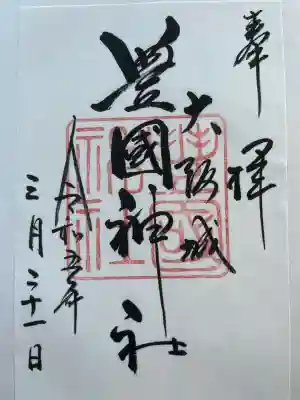 奉拝
大阪城
豊國神社
令和五年
三月二十一日